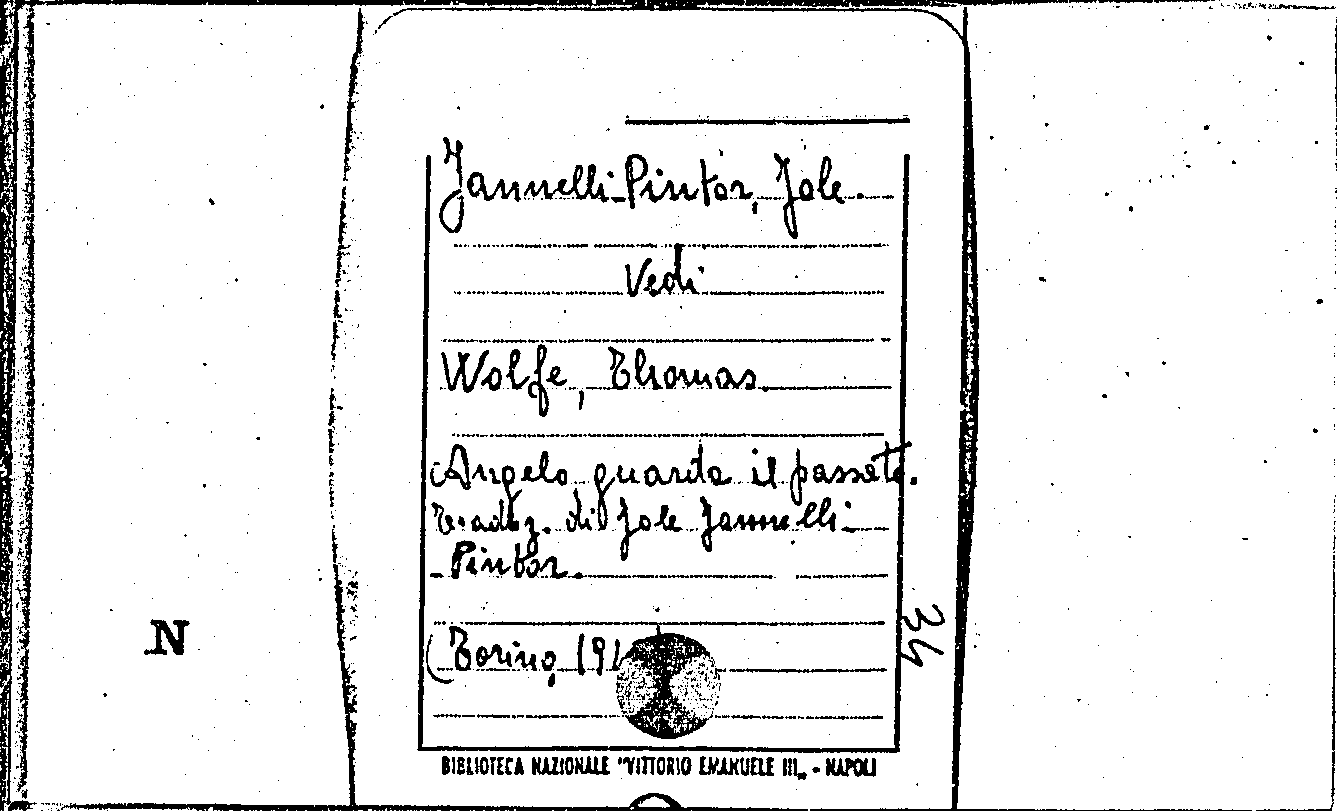 Jannelli-Pintor, Jole.
Vedi
Wolfe, Thomas.
Angelo, guarda il passato.
Traduz. di Jole Jannelli-
-Pintor.
(Torino, 19
34
N
BIBLIOTECA NAZIONALE "VITTORIO EMANUELE III„ - NAPOLI